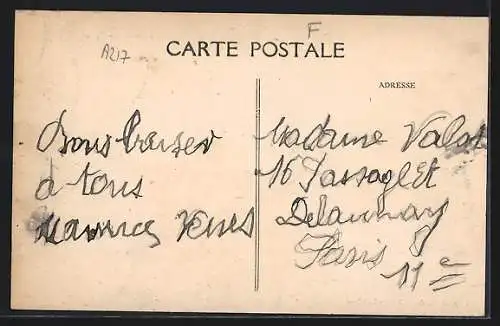 A217
F
CARTE POSTALE
ADRESSE
Bons baiser
a tous
Madame Valot
16 Passage
Delaunay
Paris
11e